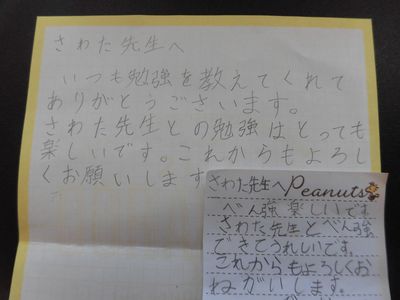 さわた先生へ
いつも勉強を教えてくれて
ありがとうございます。
さわた先生との勉強はとっても
楽しいです。これからもよろし
くお願いします
さわた先生へ Peanuts
べん強楽しいです。
さわた先生とべん強
できてうれしいです。
これからもよろしくお
ねがいします。